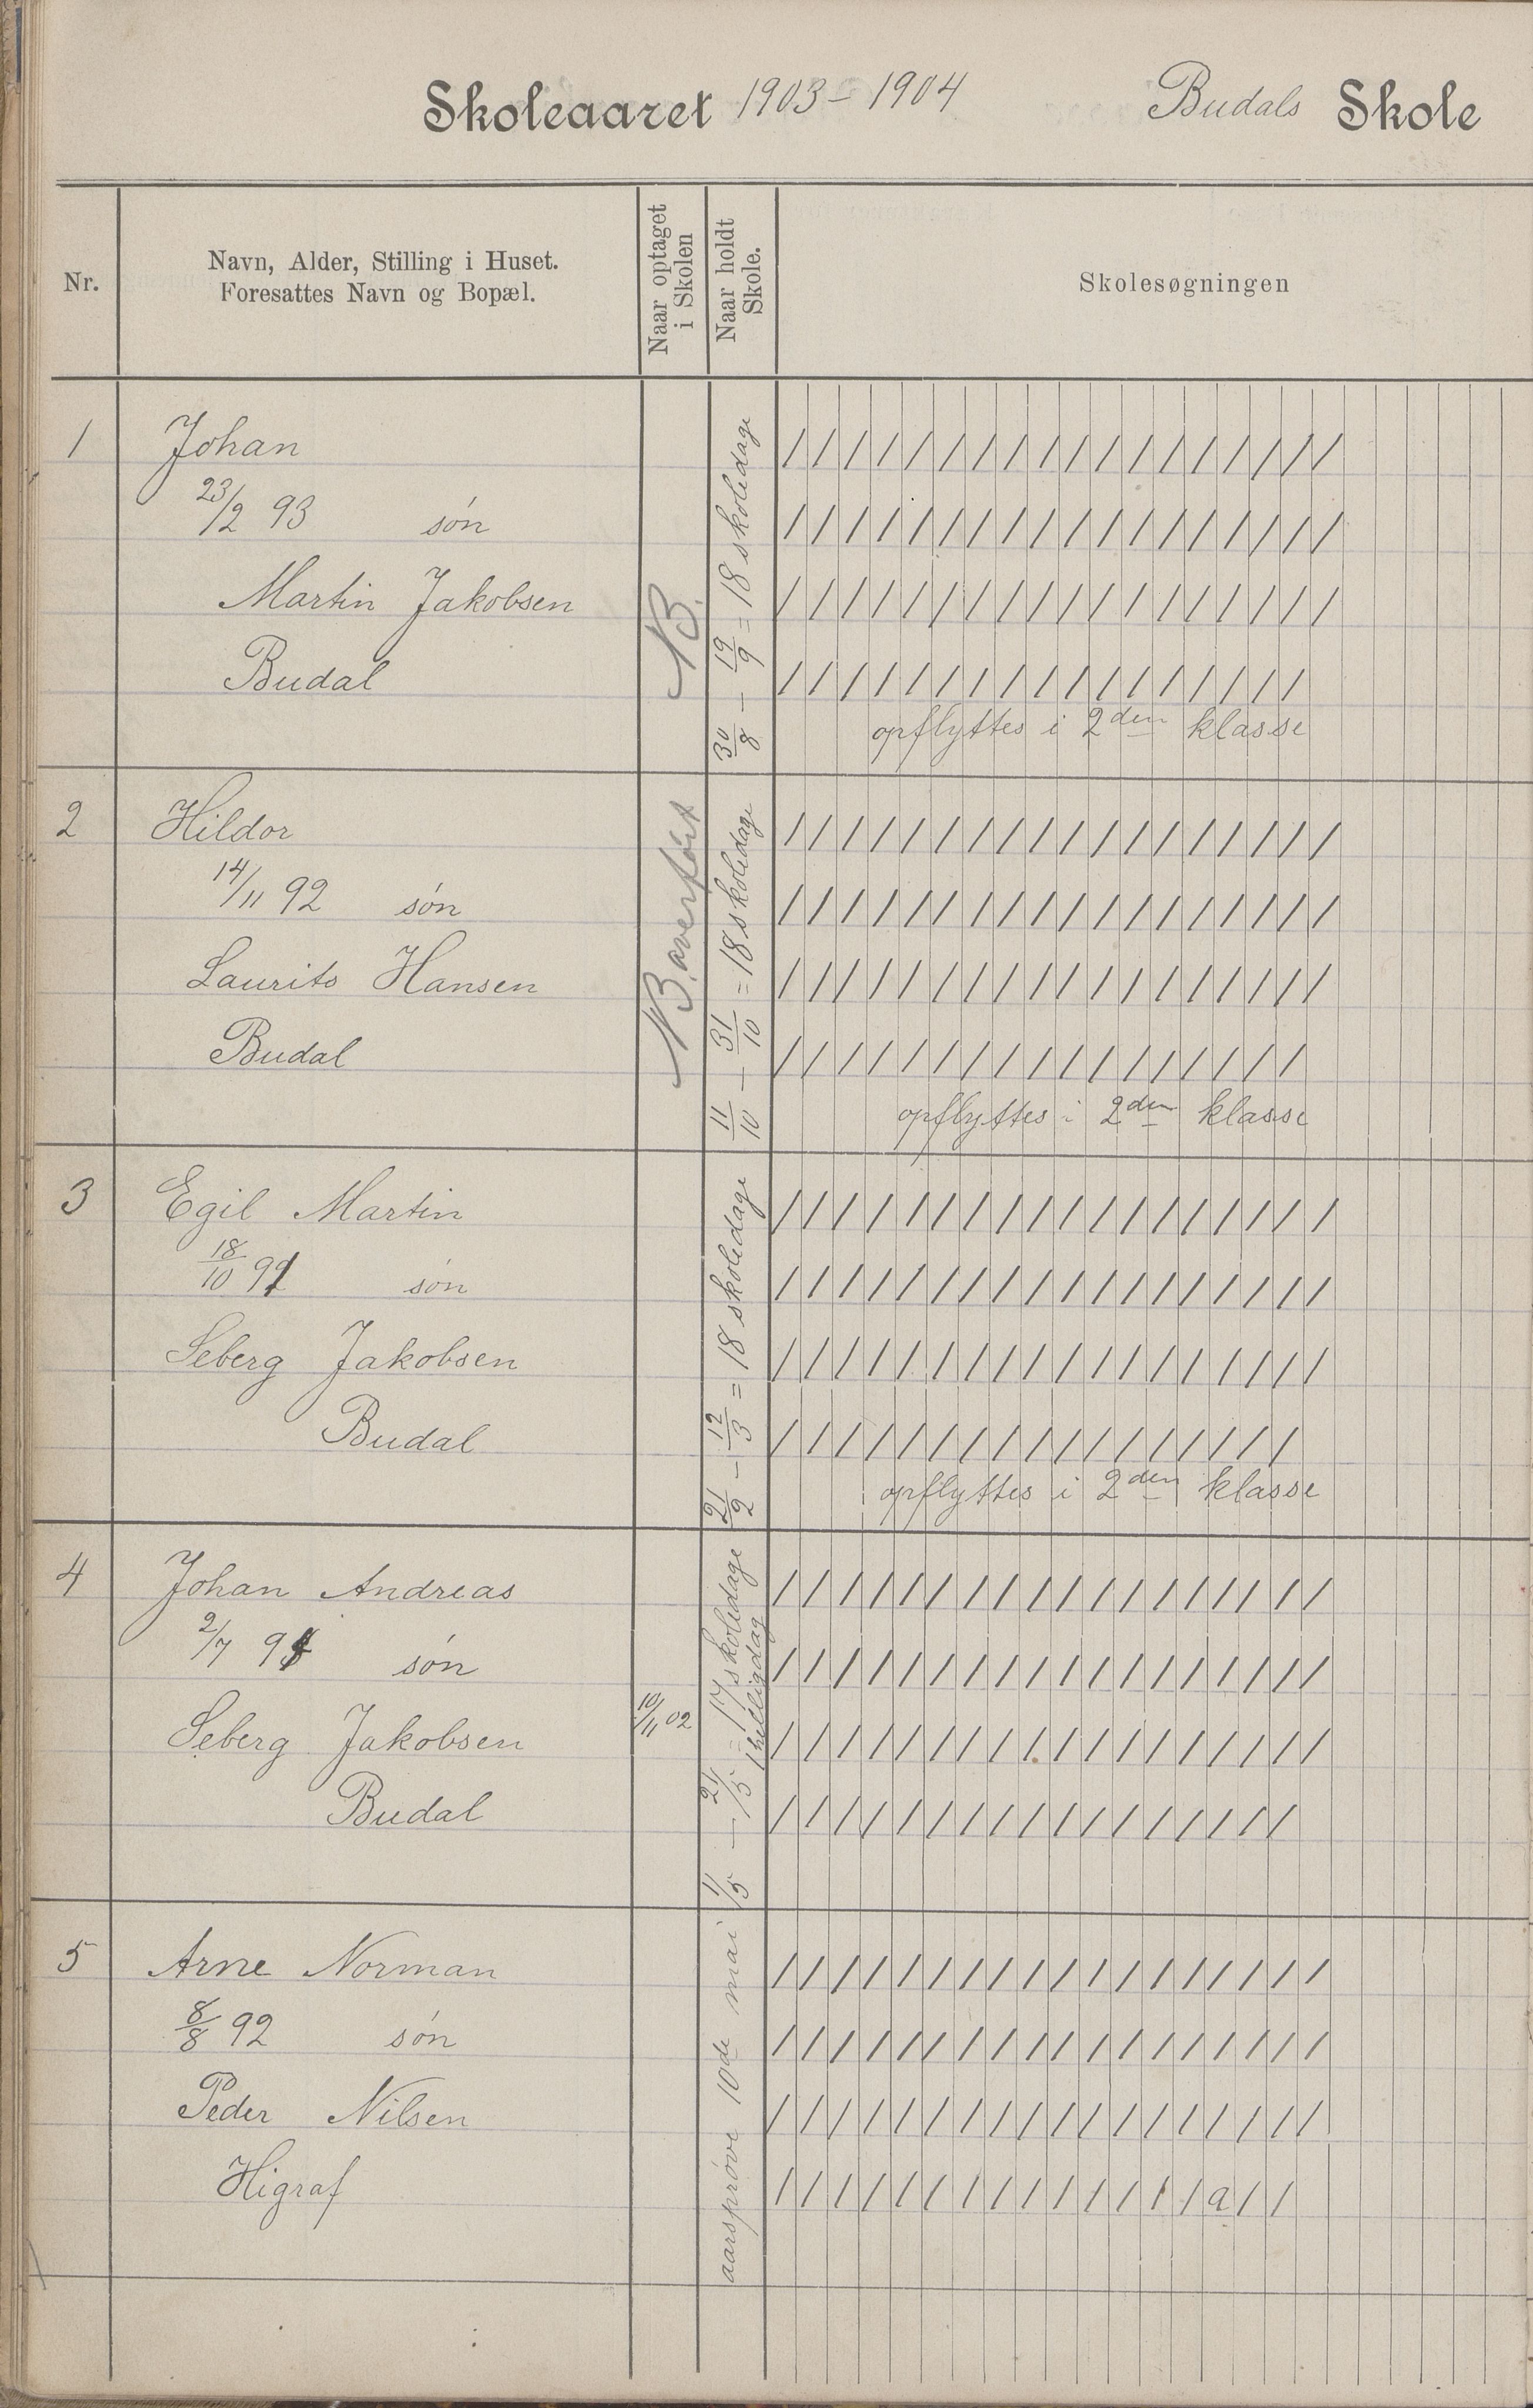 Skoleaaret 1903 - 1904 Budals Skole
Nr.
Navn, Alder, Stilling i Huset.
Foresattes Navn og Bopæl.
Naar optaget
i Skolen
Naar holdt
Skole.
Skolesøgningen
1 Johan
/ / / / / / / / / / / / / / / / / /
23/2 93 søn
/ / / / / / / / / / / / / / / / / /
Martin Jakobsen
/ / / / / / / / / / / / / / / / / /
Budal
/ / / / / / / / / / / / / / / / /
NB.
30/8 - 19/9 = 18 skoledage
opflyttes i 2den klasse
2 Hildor
/ / / / / / / / / / / / / / / / / /
14/11 92 søn
/ / / / / / / / / / / / / / / / / /
Laurits Hansen
/ / / / / / / / / / / / / / / / / /
Budal
/ / / / / / / / / / / / / / / / /
NB. overført
11/10 - 31/10 = 18 skoledage
opflyttes i 2den klasse
3 Egil Martin
/ / / / / / / / / / / / / / / / / /
18/10 91 søn
/ / / / / / / / / / / / / / / / / /
Seberg Jakobsen
/ / / / / / / / / / / / / / / / / /
Budal
/ / / / / / / / / / / / / / / / /
21/2 - 12/3 = 18 skoledage
opflyttes i 2den klasse
4 Johan Andreas
/ / / / / / / / / / / / / / / / / /
2/7 søn
/ / / / / / / / / / / / / / / / / /
Seberg Jakobsen
10/11 02
/ / / / / / / / / / / / / / / / / /
Budal
/ / / / / / / / / / / / / / / / /
11/5 - 21/5 = 17 skoledage
1 helligdag
5 Arne Norman
/ / / / / / / / / / / / / / / / / /
8/8 92 søn
/ / / / / / / / / / / / / / / / / /
Peder Nilsen
/ / / / / / / / / / / / / / / / / /
Higraf
/ / / / / / / / / / / / / / a / /
aarsprøve 10de mai